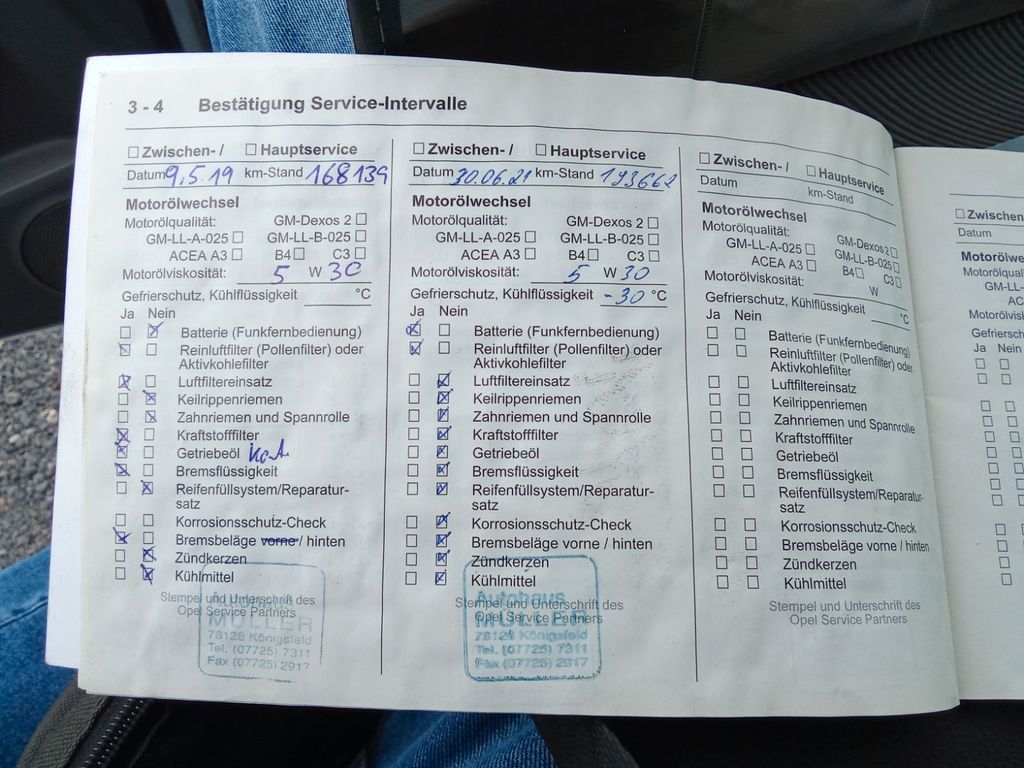 3 - 4 Bestätigung Service-Intervalle
Zwischen- / Hauptservice
Datum 9.5.19 km-Stand 168139
Motorölwechsel
Motorölqualität: GM-Dexos 2
GM-LL-A-025 GM-LL-B-025
ACEA A3 B4 C3
Motorölviskosität: 5 W 30
Gefrierschutz, Kühlflüssigkeit °C
Ja Nein
Batterie (Funkfernbedienung)
Reinluftfilter (Pollenfilter) oder
Aktivkohlefilter
Luftfiltereinsatz
Keilrippenriemen
Zahnriemen und Spannrolle
Kraftstofffilter
Getriebeöl
Bremsflüssigkeit
Reifenfüllsystem/Reparatur-
satz
Korrosionsschutz-Check
Bremsbeläge vorne / hinten
Zündkerzen
Kühlmittel
Stempel und Unterschrift des
Opel Service Partners
Autohaus
MÜLLER
78126 Königsfeld
Tel. (07725) 7311
Fax (07725) 2917
Zwischen- / Hauptservice
Datum 30.06.21 km-Stand 193662
Motorölwechsel
Motorölqualität: GM-Dexos 2
GM-LL-A-025 GM-LL-B-025
ACEA A3 B4 C3
Motorölviskosität: 5 W 30
Gefrierschutz, Kühlflüssigkeit -30 °C
Ja Nein
Batterie (Funkfernbedienung)
Reinluftfilter (Pollenfilter) oder
Aktivkohlefilter
Luftfiltereinsatz
Keilrippenriemen
Zahnriemen und Spannrolle
Kraftstofffilter
Getriebeöl
Bremsflüssigkeit
Reifenfüllsystem/Reparatur-
satz
Korrosionsschutz-Check
Bremsbeläge vorne / hinten
Zündkerzen
Kühlmittel
Stempel und Unterschrift des
Opel Service Partners
Autohaus
MÜLLER
78126 Königsfeld
Tel. (07725) 7311
Fax (07725) 2917
Zwischen- / Hauptservice
Datum km-Stand
Motorölwechsel
Motorölqualität: GM-Dexos2
GM-LL-A-025 GM-LL-B-025
ACEA A3 B4 C3
Motorölviskosität: W
Gefrierschutz, Kühlflüssigkeit °C
Ja Nein
Batterie (Funkfernbedienung)
Reinluftfilter (Pollenfilter) oder
Aktivkohlefilter
Luftfiltereinsatz
Keilrippenriemen
Zahnriemen und Spannrolle
Kraftstofffilter
Getriebeöl
Bremsflüssigkeit
Reifenfüllsystem/Reparatur-
satz
Korrosionsschutz-Check
Bremsbeläge vorne / hinten
Zündkerzen
Kühlmittel
Stempel und Unterschrift des
Opel Service Partners
Zwischen
Datum
Motorölwe
Motorölqual
GM-LL-
AC
Motorölvis
Gefriersch
Ja Nein